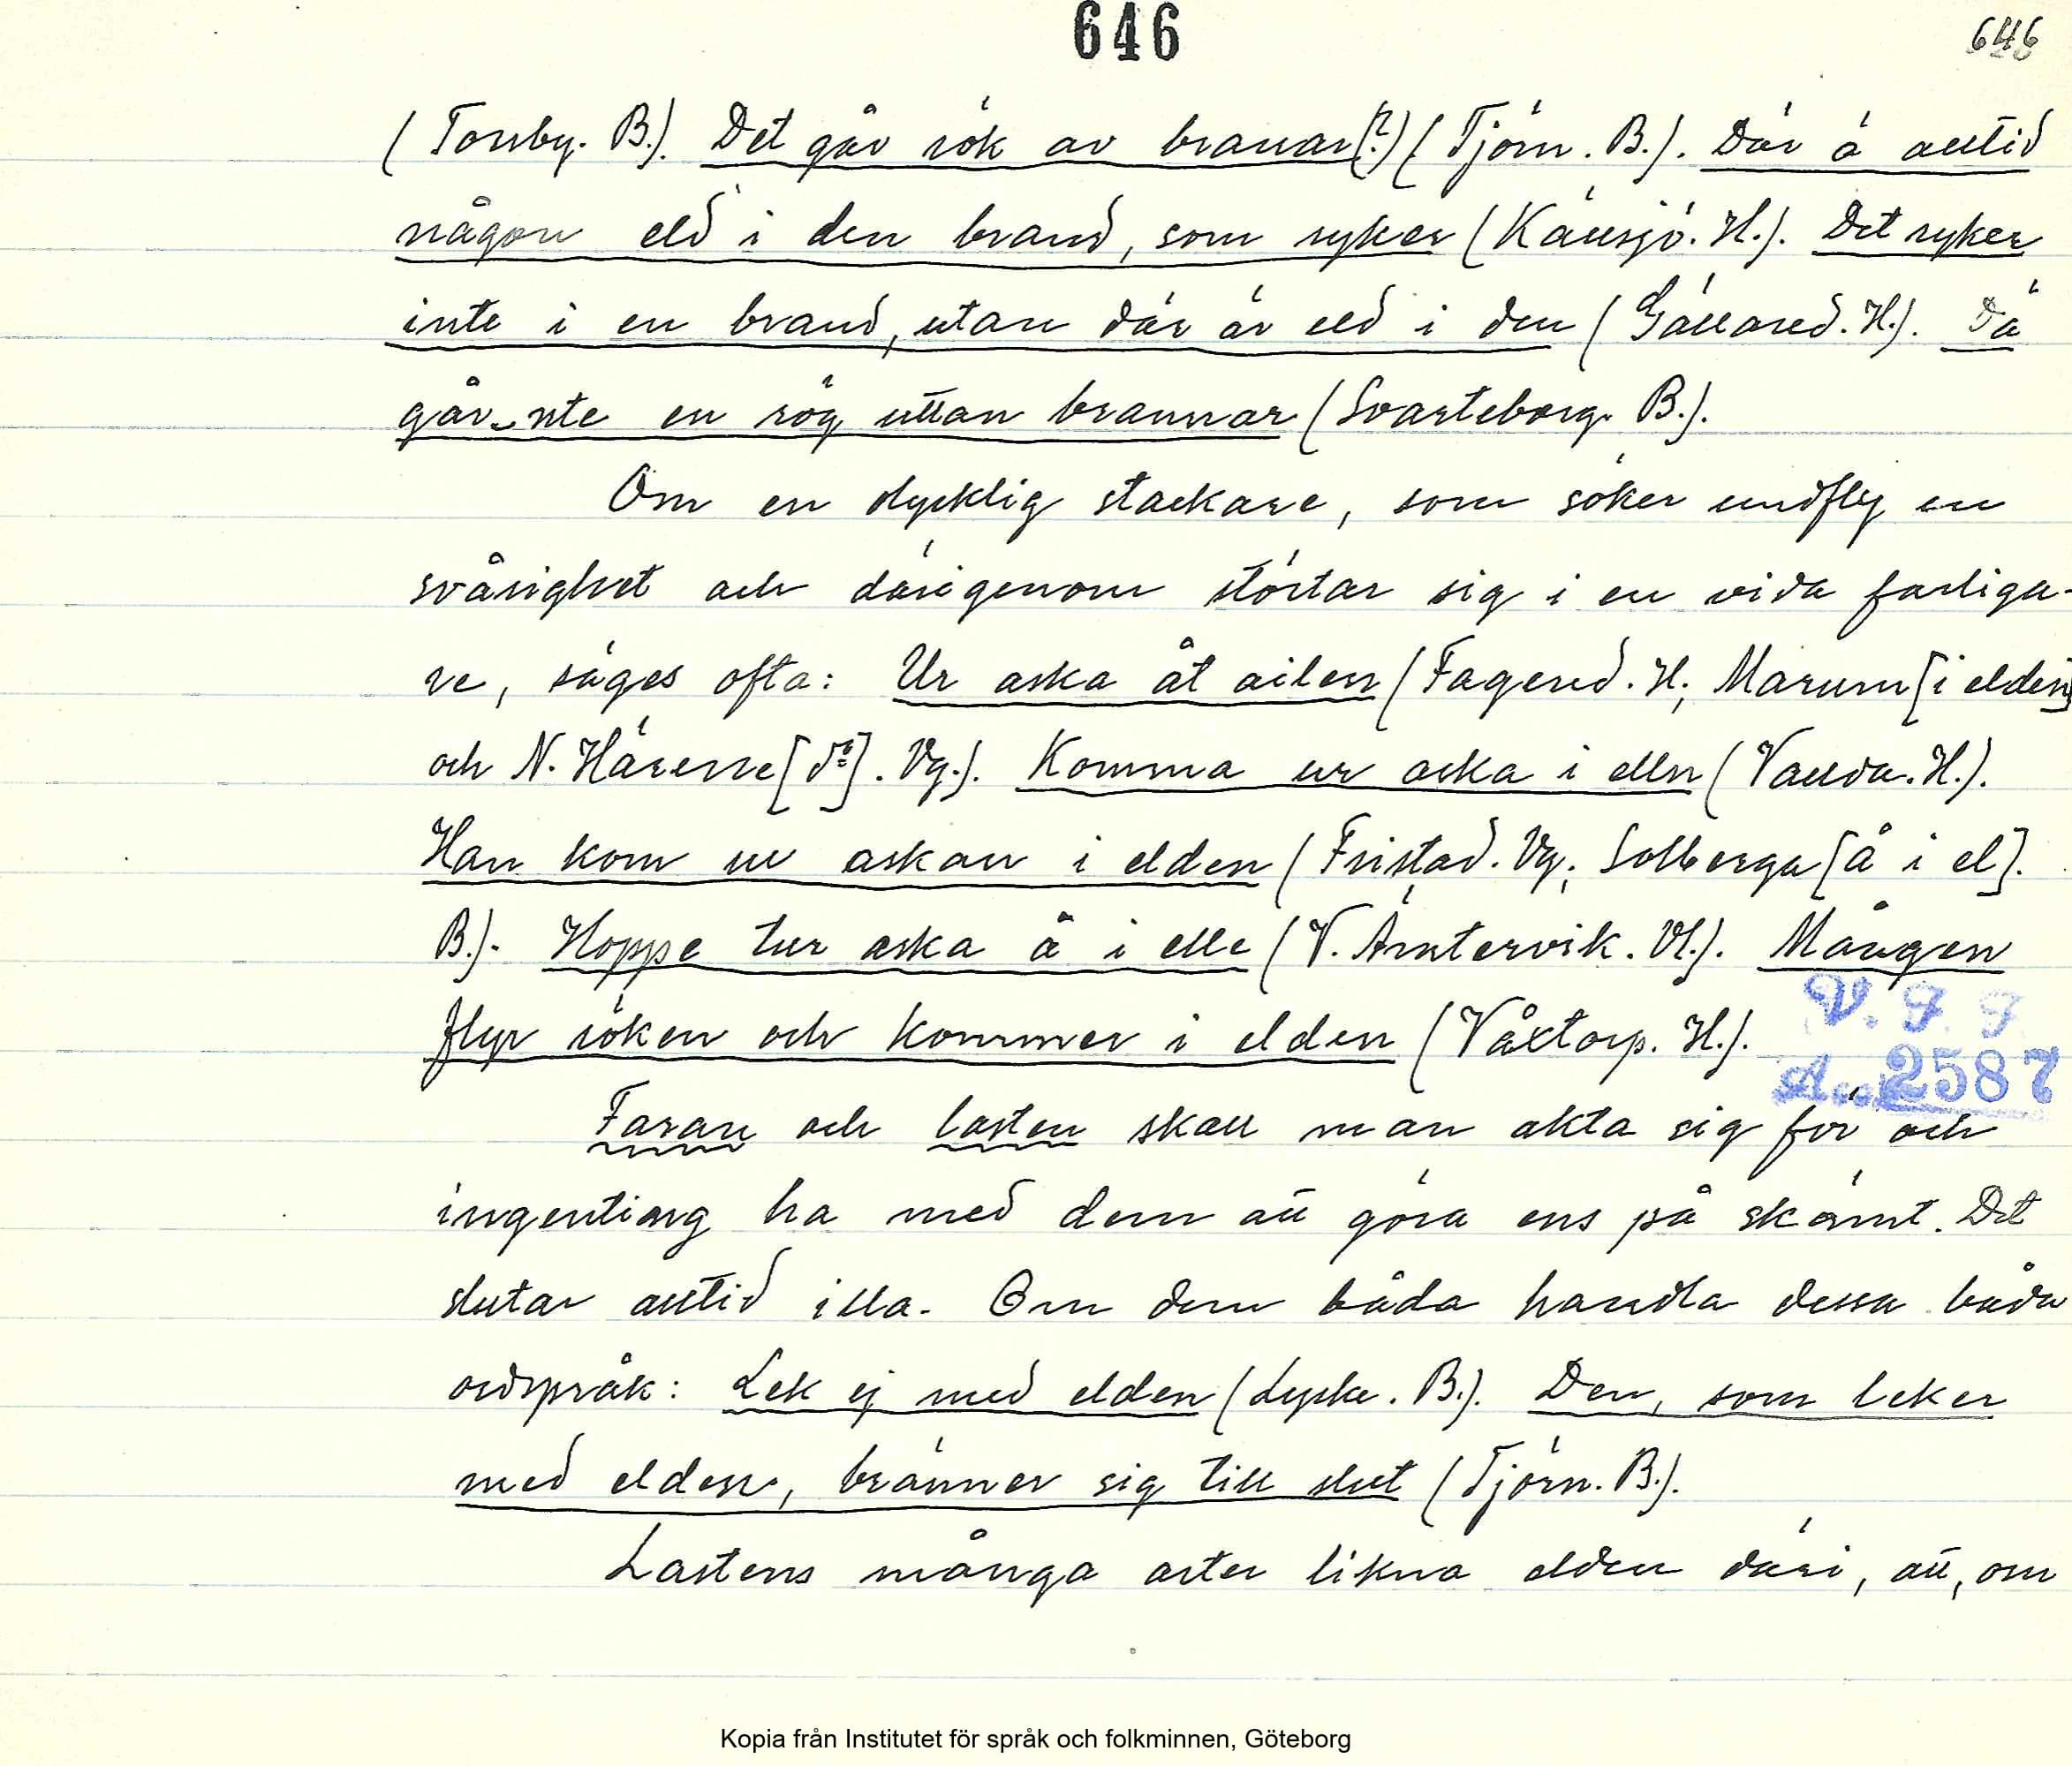 646
646
(Torsby. B.). Det går rök av branar(?) (Tjörn. B.). Där ä alltid
någon eld i den brand, som ryker (Källsjö. H.). Det ryker
inte i en brand, utan där är eld i den (Gällared. H.). Dä
går nte en rög uttan brannar (Svarteborg. B.).
Om en olycklig stackare, som söker undfly en
svårighet och därigenom störtar sig i en vida farliga-
re, säges ofta: Ur aska åt ailen (Fagered. H; Marum [i elden]
och N. Härene [do]. Vg.). Komma ur aska i elln (Valda. H.).
Han kom ur askan i elden (Fristad. Vg; Solberga [å i el].
B.). Hoppe tur aska å i elle (V. Ämtervik. Vl.). Mången
flyr röken och kommer i elden (Våxtorp. H.).
V. F. F.
Acc. 2587
Faran och lasten skall man akta sig för och
ingenting ha med dem att göra ens på skämt. Det
slutar alltid illa. Om dem båda handla dessa båda
ordspråk: Lek ej med elden (Lyse. B.). Den, som leker
med elden, bränner sig till slut (Tjörn. B.).
Lastens många arter likna elden däri, att, om
Kopia från Institutet för språk och folkminnen, Göteborg